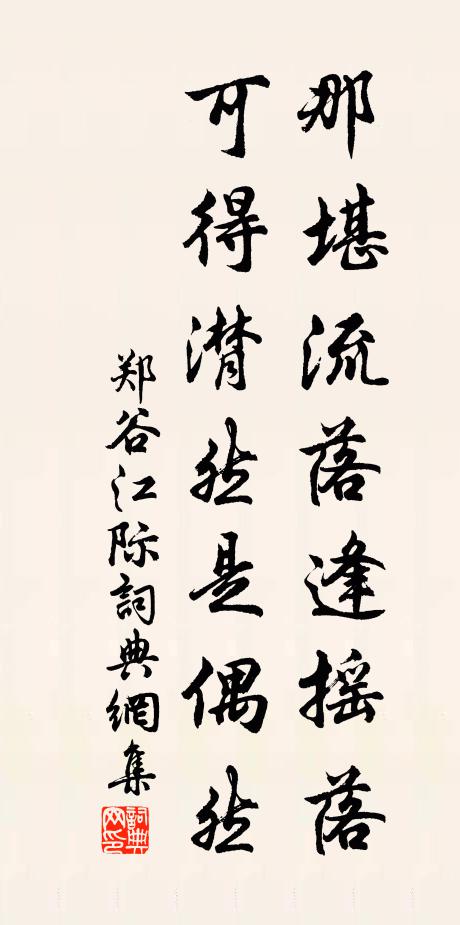 那堪流落逢摇落
可得潸然是偶然
郑谷江际詞典網集
詞典网印